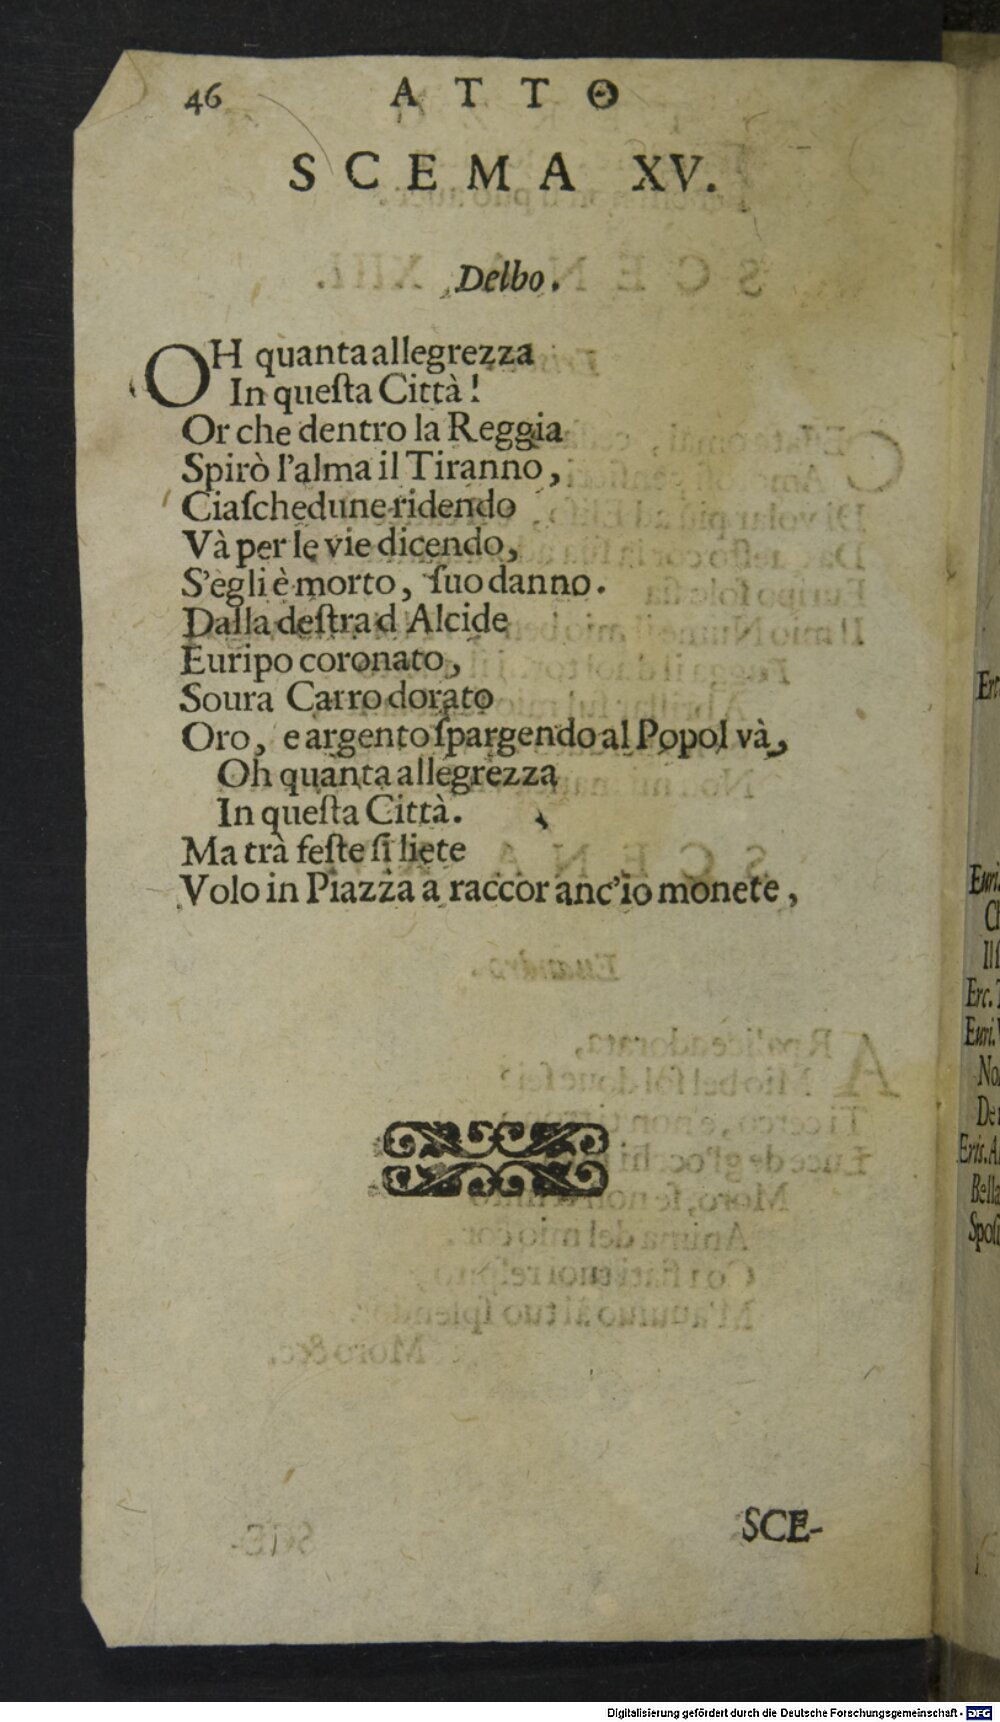 46 ATTO
SCEMA XV.
Delbo.
OH quanta allegrezza
In queſta Città!
Or che dentro la Reggia
Spirò l'alma il Tiranno,
Ciaſchedune ridendo
Và per le vie dicendo,
S'egli è morto, ſuo danno.
Dalla deſtra d Alcide
Euripo coronato,
Soura Carro dorato
Oro, e argento ſpargendo al Popol và,
Oh quanta allegrezza
In queſta Città.
Ma trà feſte ſi liete
Volo in Piazza a raccor anc'io monete,
SCE-
Ert
Euri.
Ch
Il ſ
Erc. T
Euri. V
No
De
Eris. A
Bella
Spoſ
Digitalisierung gefördert durch die Deutsche Forschungsgemeinschaft - DFG